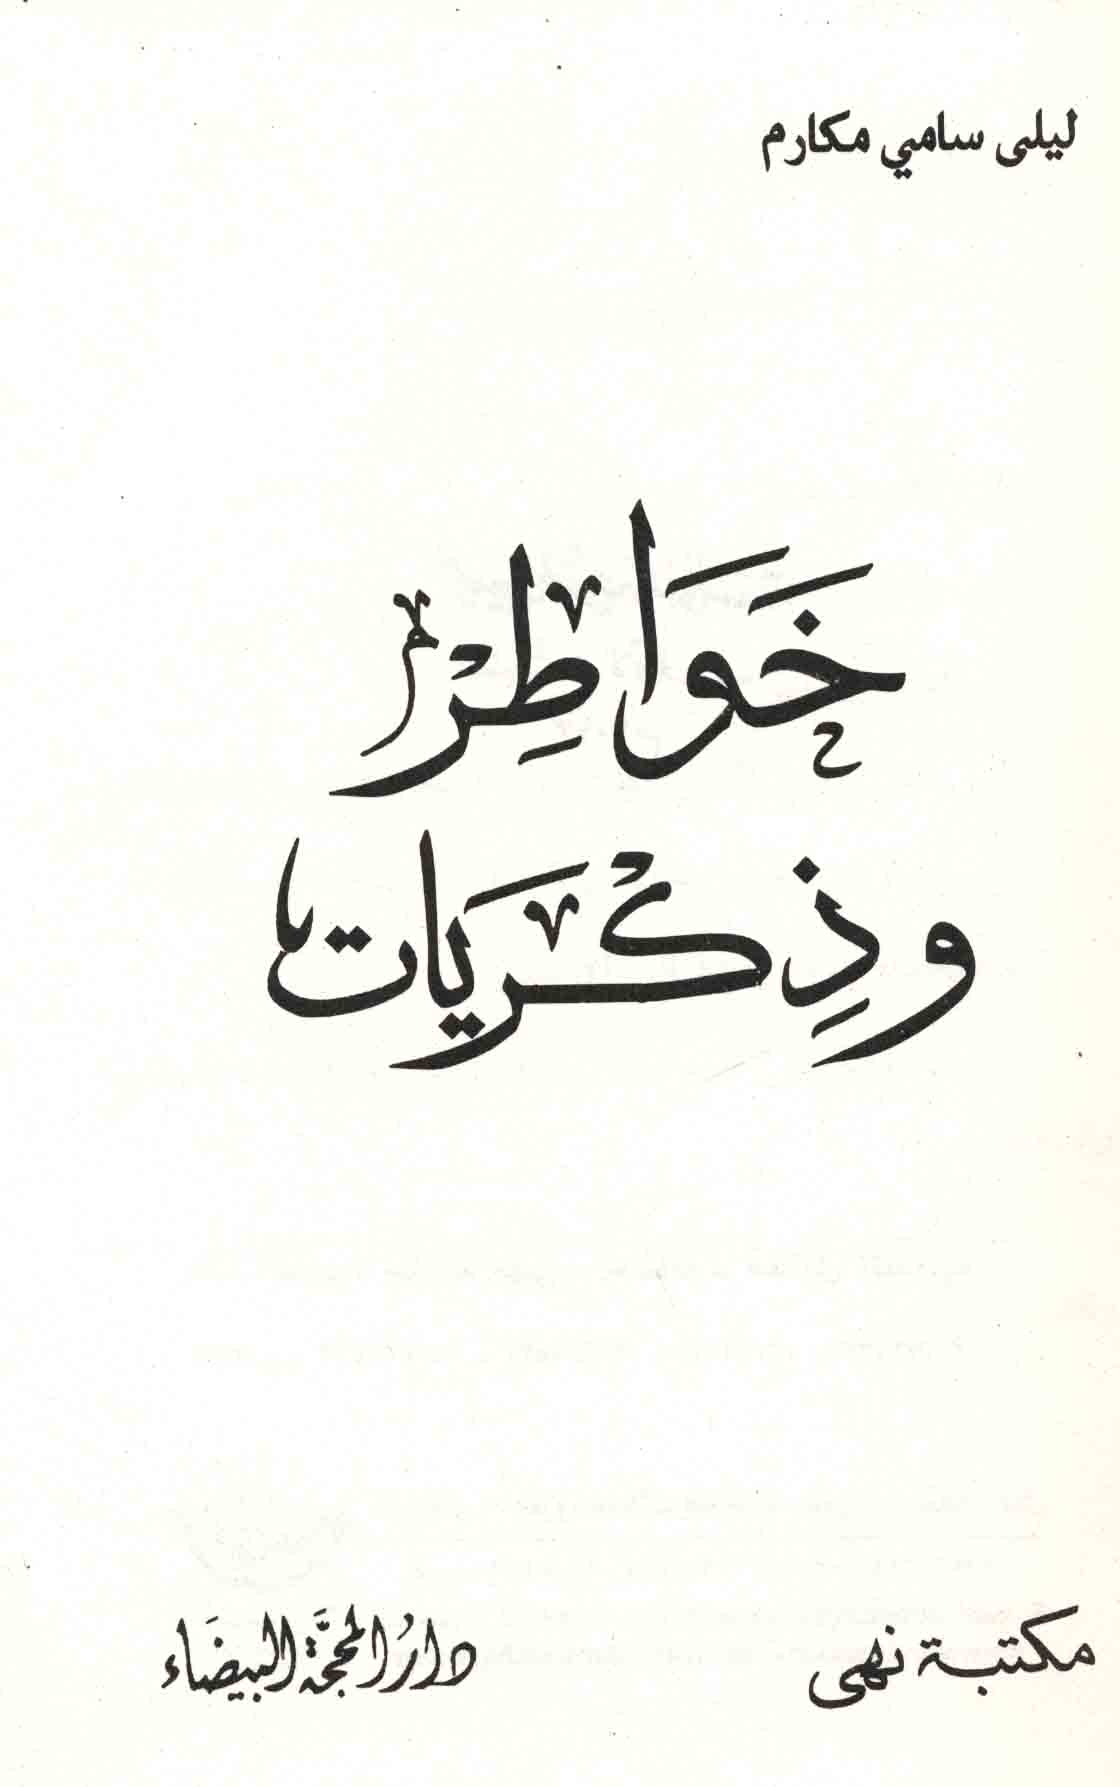 ليلى سامي مكارم
خَوَاطِر
وذِكْرَيات
مكتبة نهى
دارُ المحجَّة البيضَاء